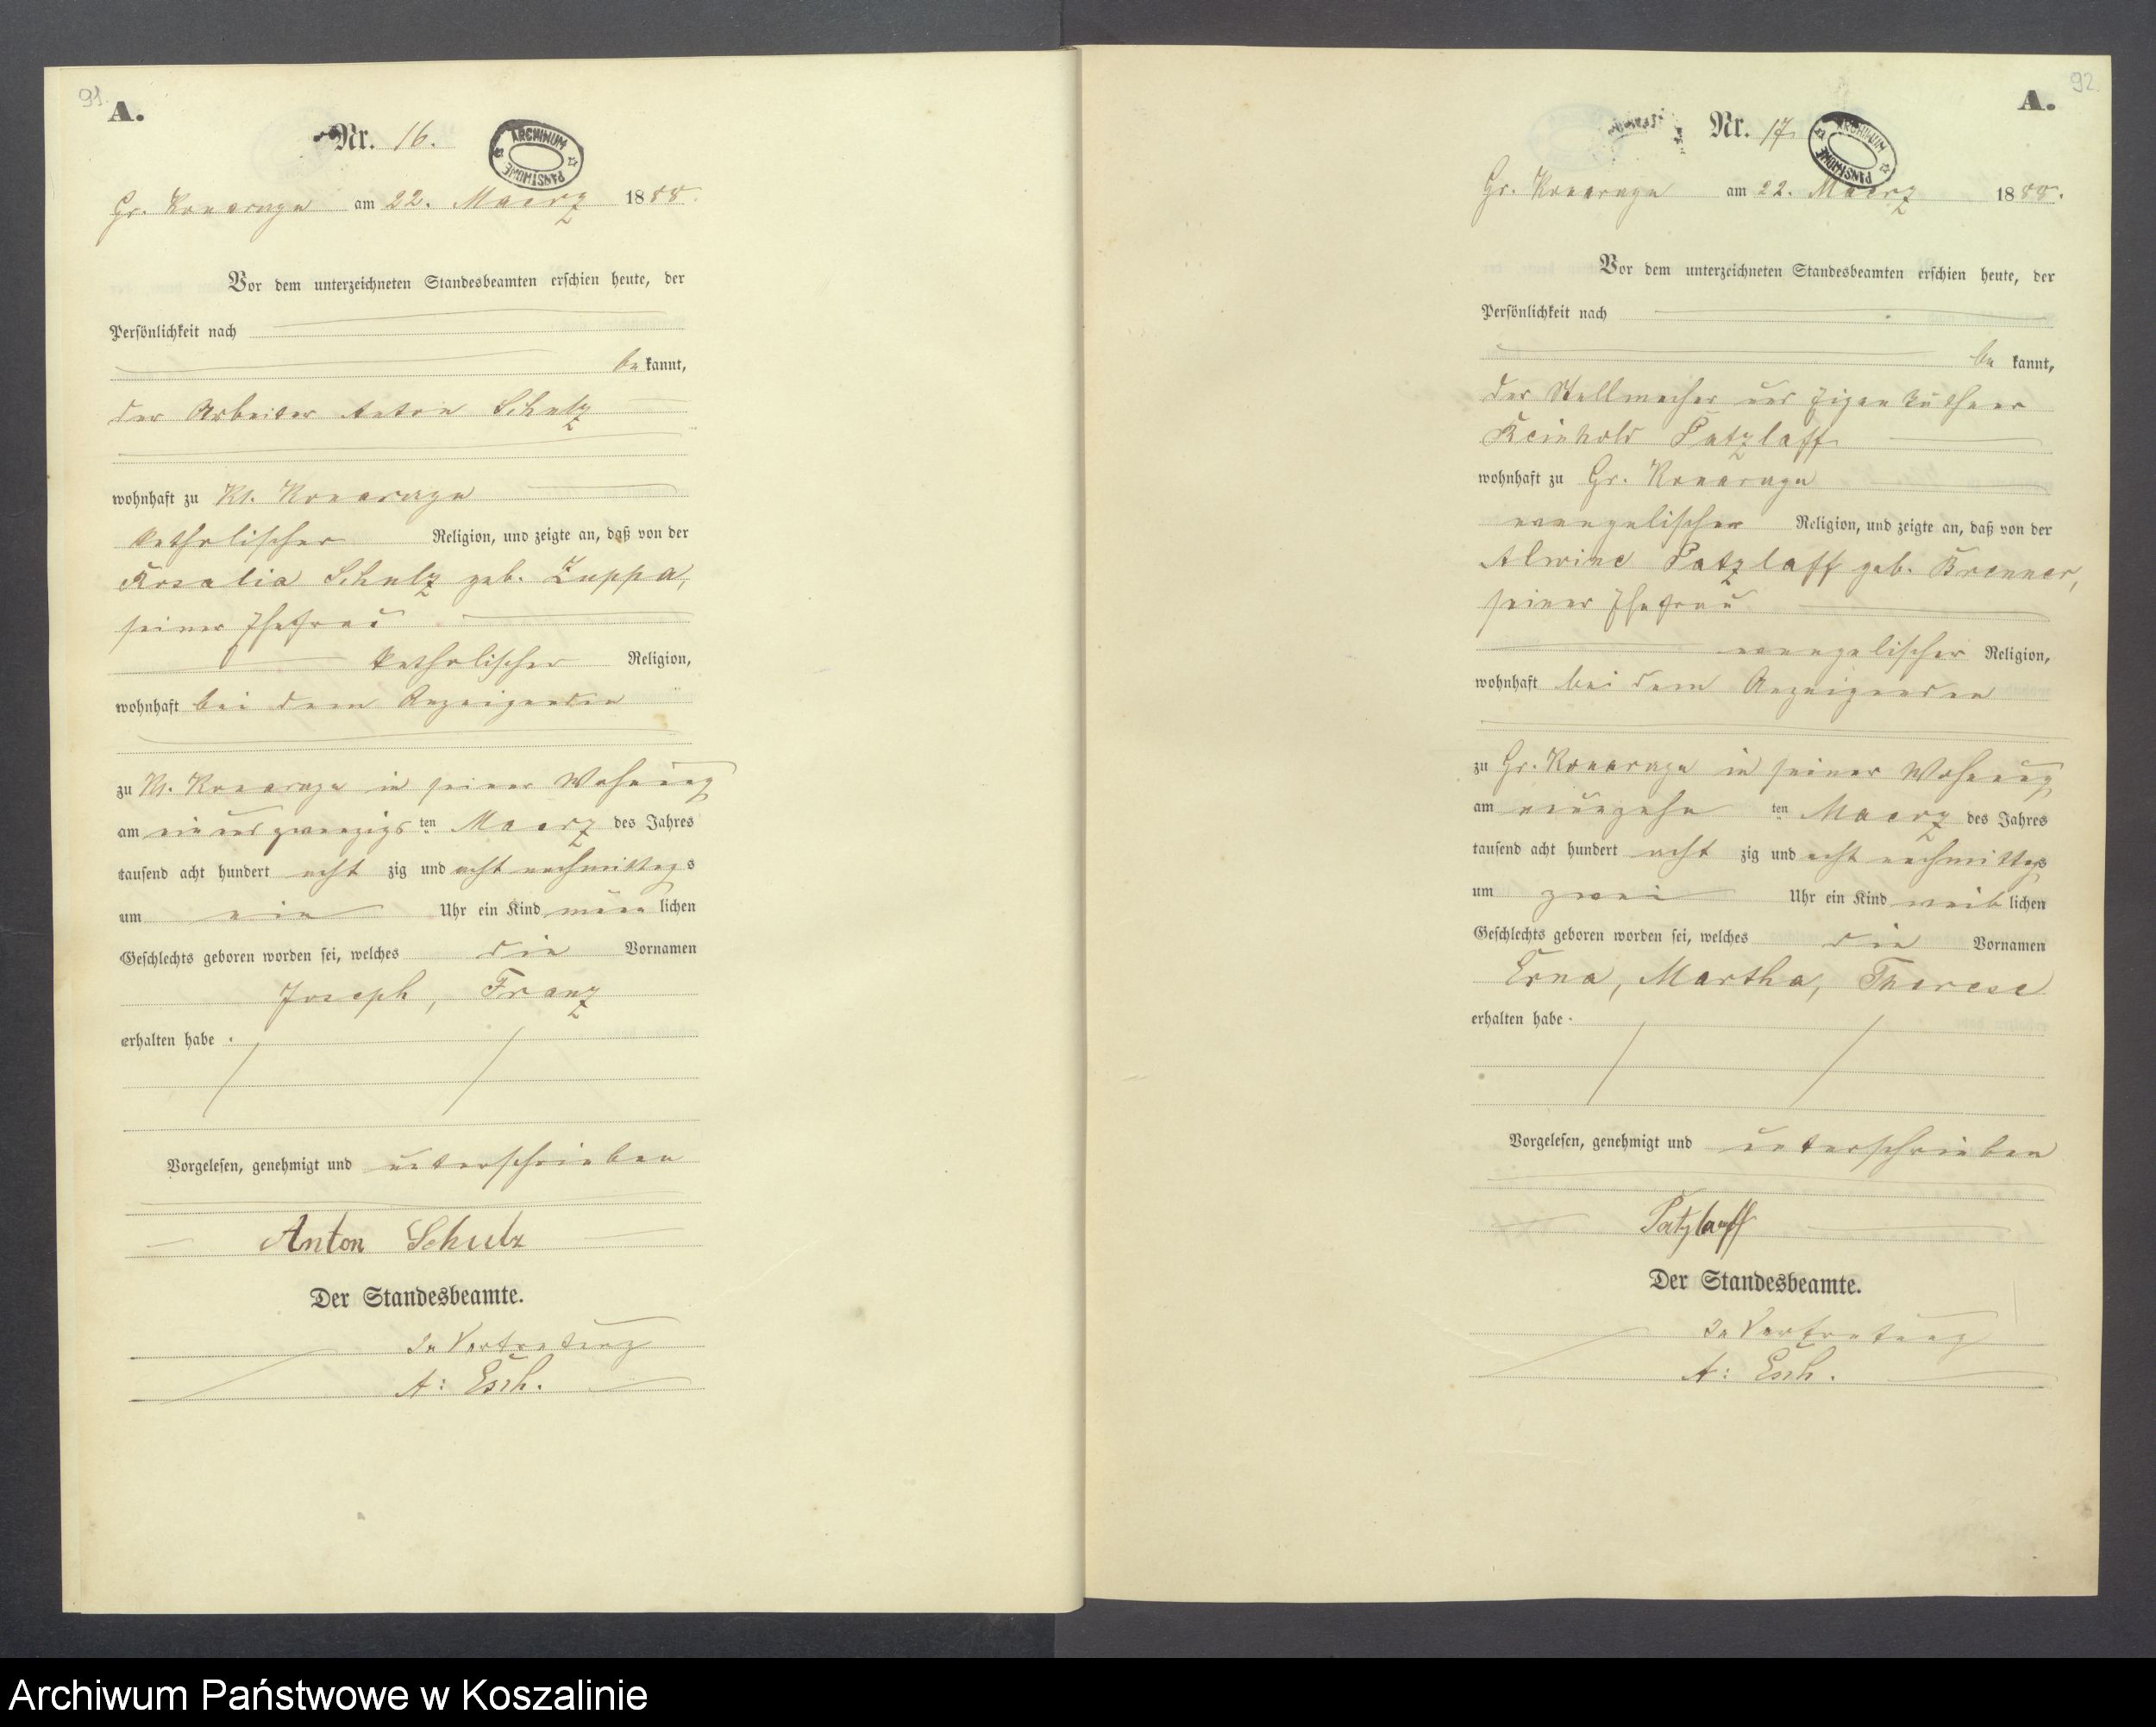 91.
A.
Nr. 16.
ARCHIWUM PAŃSTWOWE
Gr. Konarzyn am 22. Maerz 1888.
Vor dem unterzeichneten Standesbeamten erschien heute, der
Persönlichkeit nach
be kannt,
der Arbeiter Anton Schulz
wohnhaft zu Kl. Konarzyn
katholischer Religion, und zeigte an, daß von der
Rosalia Schulz geb. Zuppa,
seiner Ehefrau
katholischer Religion,
wohnhaft bei dem Anzeigenden
zu Kl. Konarzyn in seiner Wohnung
am ein und zwanzigs ten Maerz des Jahres
tausend acht hundert acht zig und acht nachmittags
um ein Uhr ein Kind männ lichen
Geschlechts geboren worden sei, welches die Vornamen
Joseph, Franz
erhalten habe.
Vorgelesen, genehmigt und unterschrieben
Anton Schulz
Der Standesbeamte.
In Vertretung
A: Esch.
92.
A.
Nr. 17.
ARCHIWUM PAŃSTWOWE
Gr. Konarzyn am 22. Maerz 1888.
Vor dem unterzeichneten Standesbeamten erschien heute, der
Persönlichkeit nach
be kannt,
der Stellmacher und Eigenthümer
Reinhold Patzlaff
wohnhaft zu Gr. Konarzyn
evangelischer Religion, und zeigte an, daß von der
Alwine Patzlaff geb. Brenner,
seiner Ehefrau
evangelischer Religion,
wohnhaft bei dem Anzeigenden
zu Gr. Konarzyn in seiner Wohnung
am neunzehn ten Maerz des Jahres
tausend acht hundert acht zig und acht nachmittags
um zwei Uhr ein Kind weib lichen
Geschlechts geboren worden sei, welches die Vornamen
Erna, Martha, Therese
erhalten habe.
Vorgelesen, genehmigt und unterschrieben
Patzlaff
Der Standesbeamte.
In Vertretung
A: Esch.
Archiwum Państwowe w Koszalinie